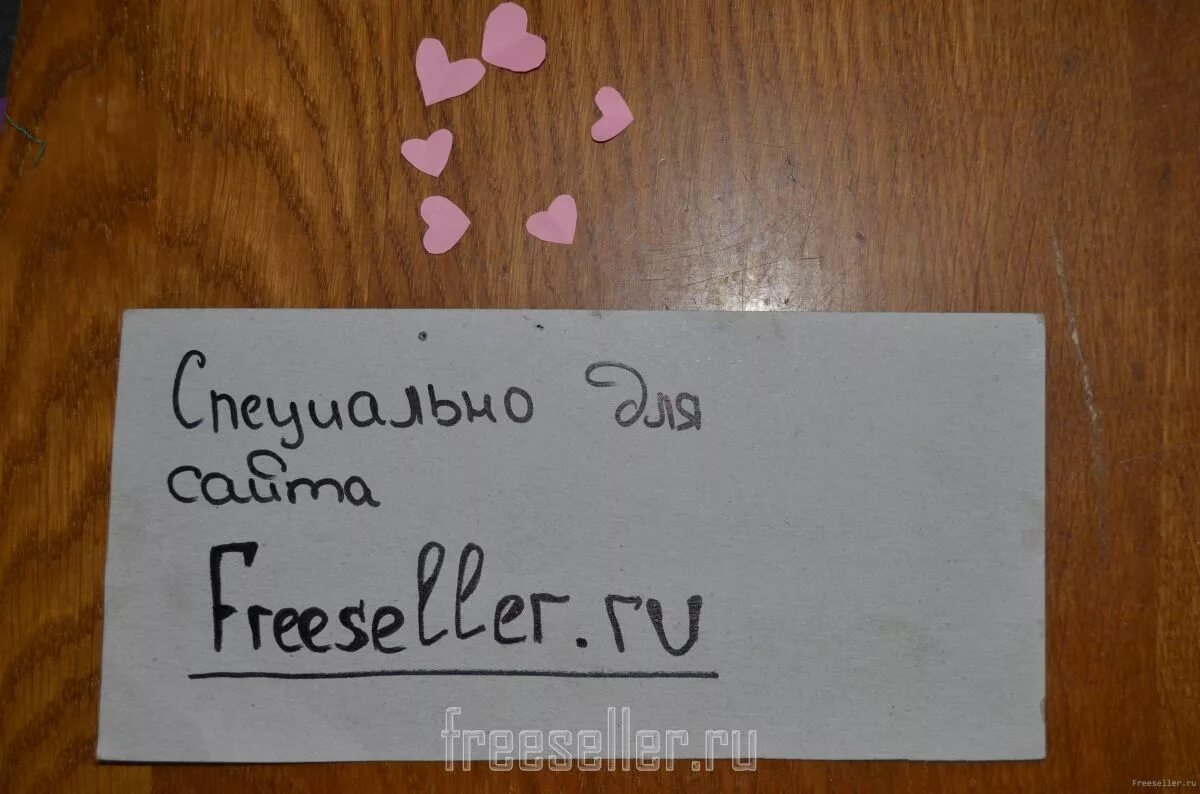 Специально для
сайта
Freeseller.ru
freeseller.ru
Freeseller.ru